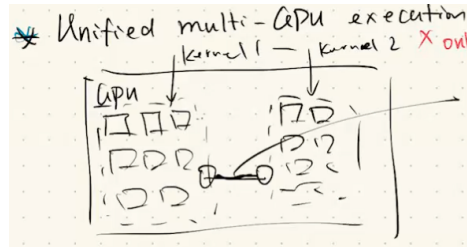 Unified multi-GPU execution
kernel 1 — kernel 2 X onl
GPU